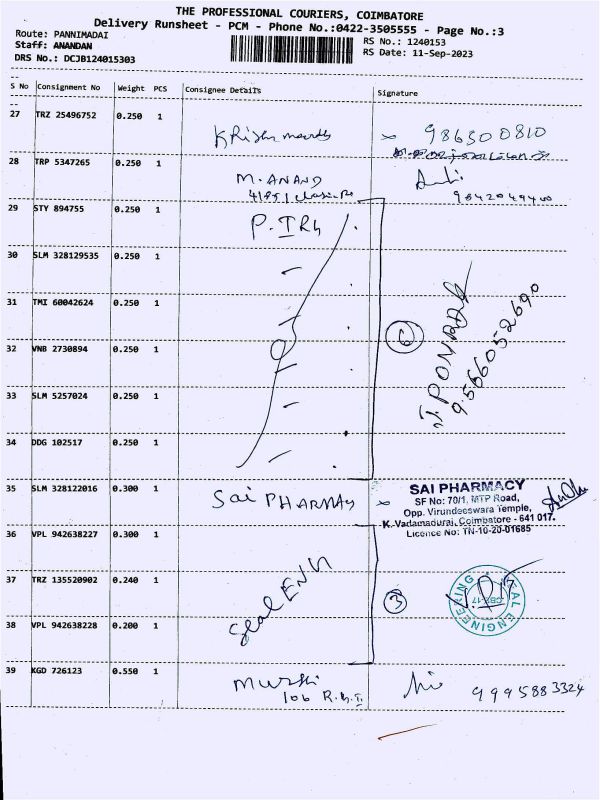 THE PROFESSIONAL COURIERS, COIMBATORE
Delivery Runsheet - PCM - Phone No.:0422-3505555 - Page No.:3
Route: PANNIMADAI
Staff: ANANDAN
DRS No.: DCJB124015303
RS No.: 1240153
RS Date: 11-Sep-2023
S No Consignment No Weight PCS Consignee Details Signature
27 TRZ 25496752 0.250 1
986500810
28 TRP 5347265 0.250 1
M. ANAND
9842049400
29 STY 894755 0.250 1
P. IRh
30 SLM 328129535 0.250 1
31 TMI 60042624 0.250 1
6
32 VNB 2730894 0.250 1
9566052690
33 SLM 5257024 0.250 1
34 DDG 102517 0.250 1
35 SLM 328122016 0.300 1
Sai PHARMAy
SAI PHARMACY
SF No: 70/1, MTP Road,
Opp. Virundeeswara Temple,
K. Vadamadurai, Coimbatore - 641 017.
Licence No: TN-10-20-01685
36 VPL 942638227 0.300 1
37 TRZ 135520902 0.240 1
Seal ENN
3
38 VPL 942638228 0.200 1
39 KGD 726123 0.550 1
9995883324